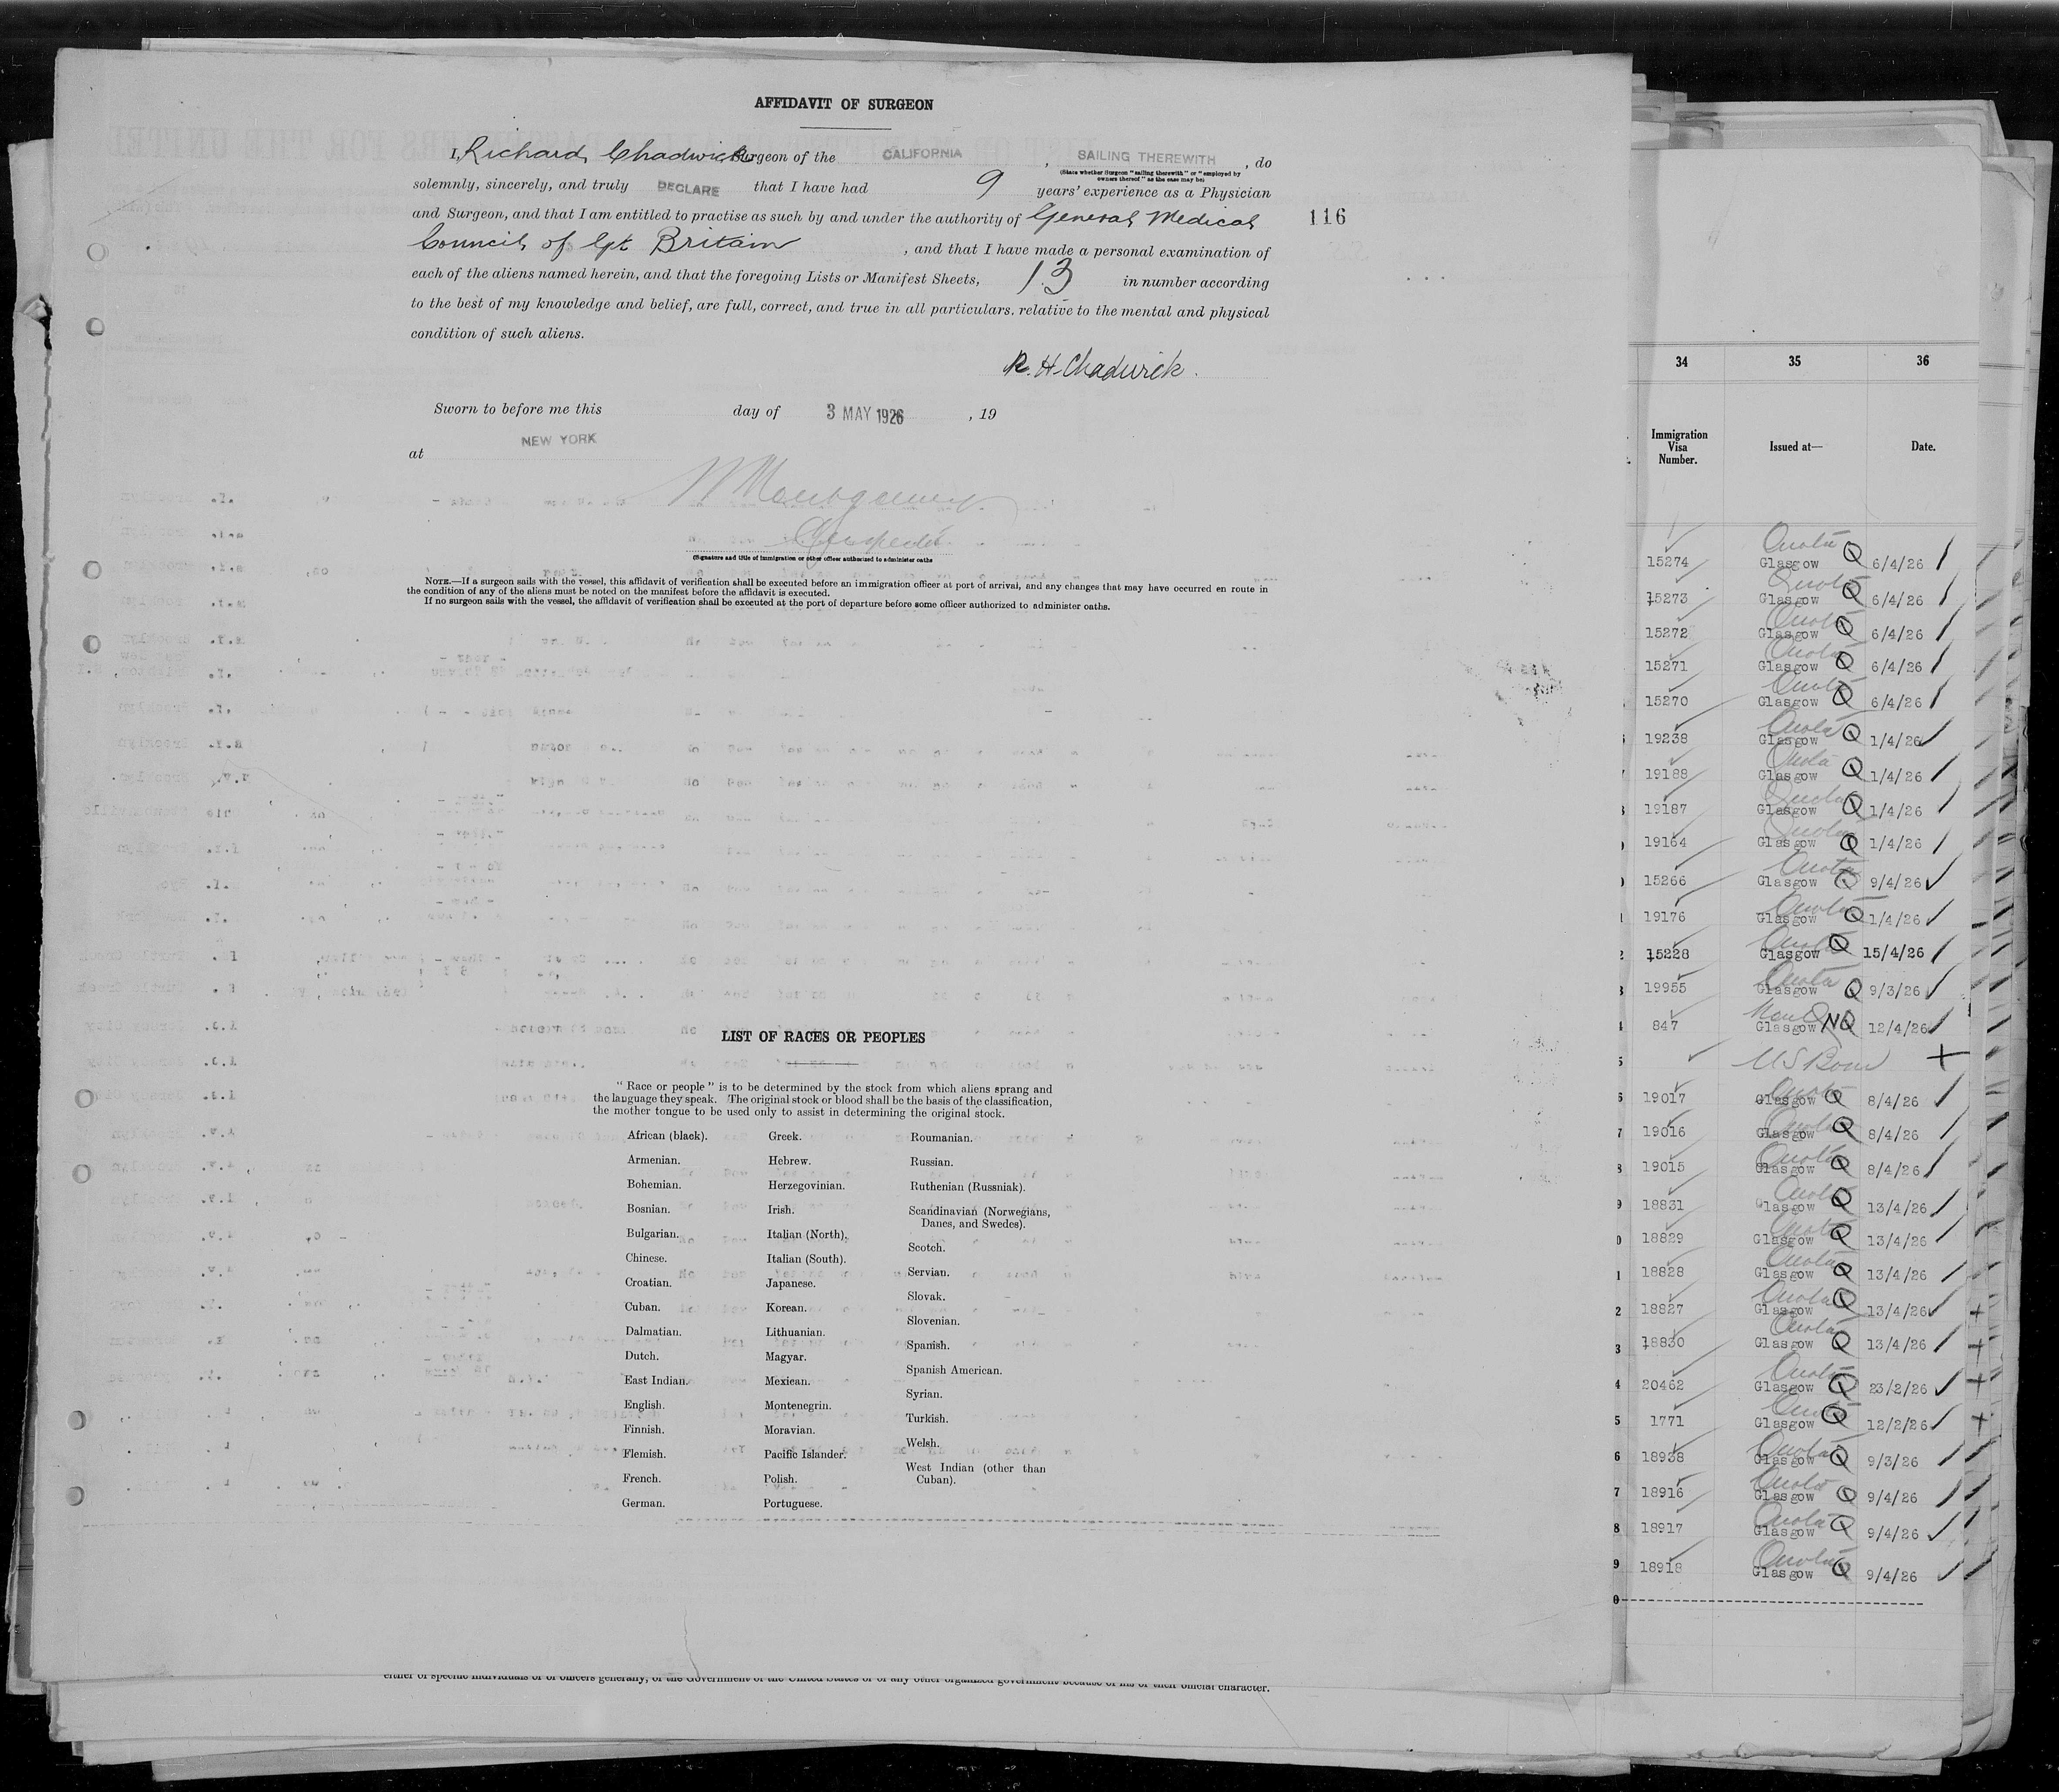 AFFIDAVIT OF SURGEON
I, Richard Chadwick Surgeon of the CALIFORNIA, SAILING THEREWITH, do
(State whether Surgeon "sailing therewith" or "employed by
owners thereof" as the case may be)
solemnly, sincerely, and truly DECLARE that I have had 9 years' experience as a Physician
and Surgeon, and that I am entitled to practise as such by and under the authority of General Medical
116
Council of Gt Britain, and that I have made a personal examination of
each of the aliens named herein, and that the foregoing Lists or Manifest Sheets, 13 in number according
to the best of my knowledge and belief, are full, correct, and true in all particulars. relative to the mental and physical
condition of such aliens.
R. H. Chadwick.
Sworn to before me this day of 3 MAY 1926, 19
at NEW YORK
Montgomery
Inspector
(Signature and title of immigration or other officer authorized to administer oaths
NOTE.—If a surgeon sails with the vessel, this affidavit of verification shall be executed before an immigration officer at port of arrival, and any changes that may have occurred en route in
the condition of any of the aliens must be noted on the manifest before the affidavit is executed.
If no surgeon sails with the vessel, the affidavit of verification shall be executed at the port of departure before some officer authorized to administer oaths.
LIST OF RACES OR PEOPLES
"Race or people" is to be determined by the stock from which aliens sprang and
the language they speak. The original stock or blood shall be the basis of the classification,
the mother tongue to be used only to assist in determining the original stock.
African (black).
Armenian.
Bohemian.
Bosnian.
Bulgarian.
Chinese.
Croatian.
Cuban.
Dalmatian.
Dutch.
East Indian.
English.
Finnish.
Flemish.
French.
German.
Greek.
Hebrew.
Herzegovinian.
Irish.
Italian (North).
Italian (South).
Japanese.
Korean.
Lithuanian.
Magyar.
Mexican.
Montenegrin.
Moravian.
Pacific Islander.
Polish.
Portuguese.
Roumanian.
Russian.
Ruthenian (Russniak).
Scandinavian (Norwegians,
Danes, and Swedes).
Scotch.
Servian.
Slovak.
Slovenian.
Spanish.
Spanish American.
Syrian.
Turkish.
Welsh.
West Indian (other than
Cuban).
either of specific individuals or of officers generally, of the Government of the United States or of any other organized government because of his or their official character.
34 35 36
Immigration
Visa
Number.
Issued at—
Date.
15274 Quota Glasgow Q 6/4/26
15273 Quota Glasgow Q 6/4/26
15272 Quota Glasgow Q 6/4/26
15271 Quota Glasgow Q 6/4/26
15270 Quota Glasgow Q 6/4/26
19238 Quota Glasgow Q 1/4/26
19188 Quota Glasgow Q 1/4/26
19187 Quota Glasgow Q 1/4/26
19164 Quota Glasgow Q 1/4/26
15266 Quota Glasgow Q 9/4/26
19176 Quota Glasgow Q 1/4/26
15228 Quota Glasgow Q 15/4/26
19955 Quota Glasgow Q 9/3/26
847 Non Q Glasgow NQ 12/4/26
US Born
19017 Quota Glasgow Q 8/4/26
19016 Quota Glasgow Q 8/4/26
19015 Quota Glasgow Q 8/4/26
18831 Quota Glasgow Q 13/4/26
18829 Quota Glasgow Q 13/4/26
18828 Quota Glasgow Q 13/4/26
18827 Quota Glasgow Q 13/4/26
18830 Quota Glasgow Q 13/4/26
20462 Quota Glasgow Q 23/2/26
1771 Quota Glasgow Q 12/2/26
18938 Quota Glasgow Q 9/3/26
18916 Quota Glasgow Q 9/4/26
18917 Quota Glasgow Q 9/4/26
18918 Quota Glasgow Q 9/4/26